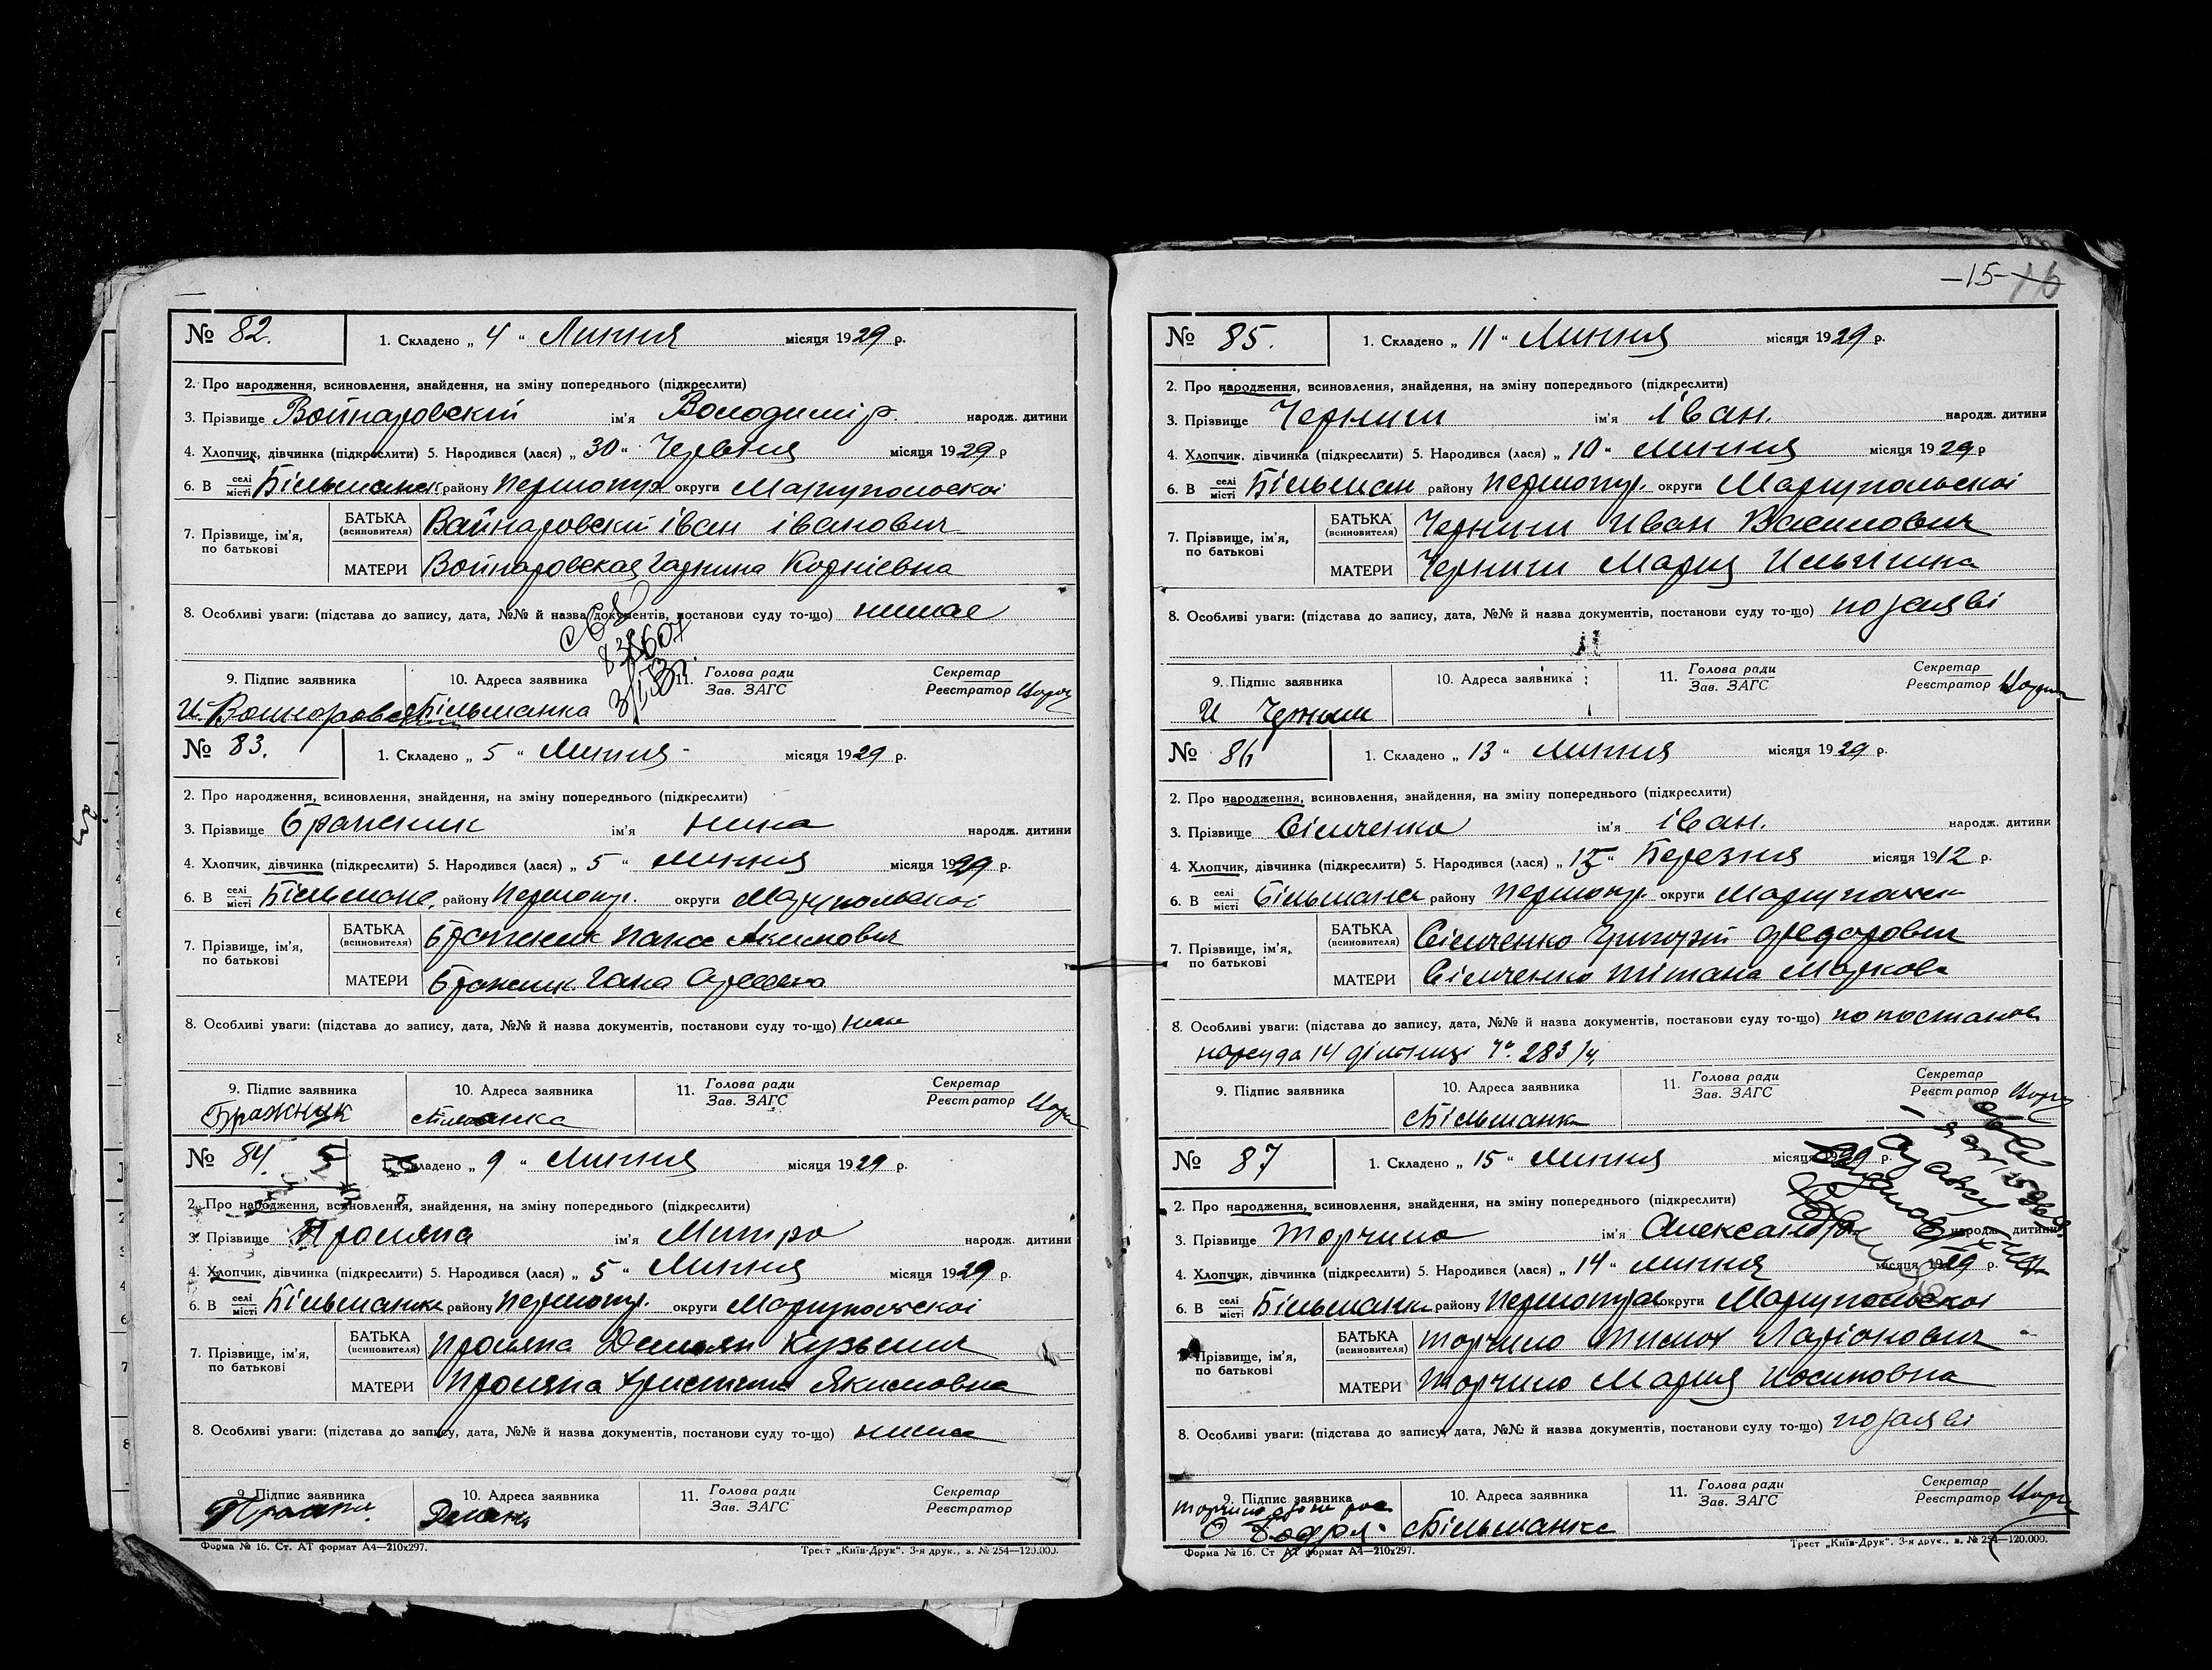 № 82.
1. Складено „ 4 “ Липня місяця 1929 р.
2. Про народження, всиновлення, знайдення, на зміну попереднього (підкреслити)
3. Прізвище Войнаровский ім'я Володимір. народж. дитини
4. Хлопчик, дівчинка (підкреслити) 5. Народився (лася) „ 30 “ Червня місяця 1929 р
6. В селі місті району округи Маріупольскоі
7. Прізвище, ім'я, по батькові
БАТЬКА (всиновителя) Войнаровский іван іванович
МАТЕРИ Войнаровская Корніевна
8. Особливі уваги: (підстава до запису, дата, №№ й назва документів, постанови суду то-що) немае
9. Підпис заявника 10. Адреса заявника 11. Голова ради Зав. ЗАГС Секретар Реєстратор
И. Войнаровский Більманка
№ 83.
1. Складено „ 5 “ Липня місяця 1929 р.
2. Про народження, всиновлення, знайдення, на зміну попереднього (підкреслити)
3. Прізвище Бражник ім'я Нина народж. дитини
4. Хлопчик, дівчинка (підкреслити) 5. Народився (лася) „ 5 “ Липня місяця 1929 р.
6. В селі місті району округи Маріупольскоі
7. Прізвище, ім'я, по батькові
БАТЬКА (всиновителя) Бражник Панас Акимович
МАТЕРИ Бражник Гана
8. Особливі уваги: (підстава до запису, дата, №№ й назва документів, постанови суду то-що)
9. Підпис заявника 10. Адреса заявника 11. Голова ради Зав. ЗАГС Секретар Реєстратор
Бражник Більманка
№ 84.
1. Складено „ 9 “ Липня місяця 1929 р.
2. Про народження, всиновлення, знайдення, на зміну попереднього (підкреслити)
3. Прізвище ім'я Митро народж. дитини
4. Хлопчик, дівчинка (підкреслити) 5. Народився (лася) „ 5 “ Липня місяця 1929 р.
6. В селі місті Більманка району округи Маріупольскоі
7. Прізвище, ім'я, по батькові
БАТЬКА (всиновителя) Демьян Кузьмич
МАТЕРИ Христина Якимовна
8. Особливі уваги: (підстава до запису, дата, №№ й назва документів, постанови суду то-що)
9. Підпис заявника 10. Адреса заявника 11. Голова ради Зав. ЗАГС Секретар Реєстратор
Форма № 16. Ст. АТ формат А4—210х297. Трест „Київ-Друк“. 3-я друк., з. № 254—120.000.
–15– 16
№ 85.
1. Складено „ 11 “ Липня місяця 1929 р.
2. Про народження, всиновлення, знайдення, на зміну попереднього (підкреслити)
3. Прізвище Черниш ім'я іван. народж. дитини
4. Хлопчик, дівчинка (підкреслити) 5. Народився (лася) „ 10 “ липня місяця 1929 р
6. В селі місті Більман району округи Маріупольскоі
7. Прізвище, ім'я, по батькові
БАТЬКА (всиновителя) Черниш Иван Василович
МАТЕРИ Черниш Мария Ильінична
8. Особливі уваги: (підстава до запису, дата, №№ й назва документів, постанови суду то-що) по заяві
9. Підпис заявника 10. Адреса заявника 11. Голова ради Зав. ЗАГС Секретар Реєстратор
И Черниш
№ 86
1. Складено „ 13 “ липня місяця 1929 р.
2. Про народження, всиновлення, знайдення, на зміну попереднього (підкреслити)
3. Прізвище Сімченко ім'я іван. народж. дитини
4. Хлопчик, дівчинка (підкреслити) 5. Народився (лася) „ “ Березня місяця 1912 р.
6. В селі місті району округи
7. Прізвище, ім'я, по батькові
БАТЬКА (всиновителя) Сімченко Григорій Федорович
МАТЕРИ Сімченко Маркова
8. Особливі уваги: (підстава до запису, дата, №№ й назва документів, постанови суду то-що) по постанов
нарсуда 14 дільниці
9. Підпис заявника 10. Адреса заявника 11. Голова ради Зав. ЗАГС Секретар Реєстратор
Більманка
№ 87
1. Складено „ 15 “ липня місяця 1929 р.
2. Про народження, всиновлення, знайдення, на зміну попереднього (підкреслити)
3. Прізвище Торчило ім'я Александр народж. дитини
4. Хлопчик, дівчинка (підкреслити) 5. Народився (лася) „ 14 “ липня місяця 1929 р.
6. В селі місті Більманка району округи Маріупольскоі
7. Прізвище, ім'я, по батькові
БАТЬКА (всиновителя) Торчило Ларіонович
МАТЕРИ Торчило Мария Иосиповна
8. Особливі уваги: (підстава до запису, дата, №№ й назва документів, постанови суду то-що) по заяві
9. Підпис заявника 10. Адреса заявника 11. Голова ради Зав. ЗАГС Секретар Реєстратор
Більманка
Форма № 16. Ст АТ формат А4—210х297. Трест „Київ-Друк“. 3-я друк., з. № 254—120.000.